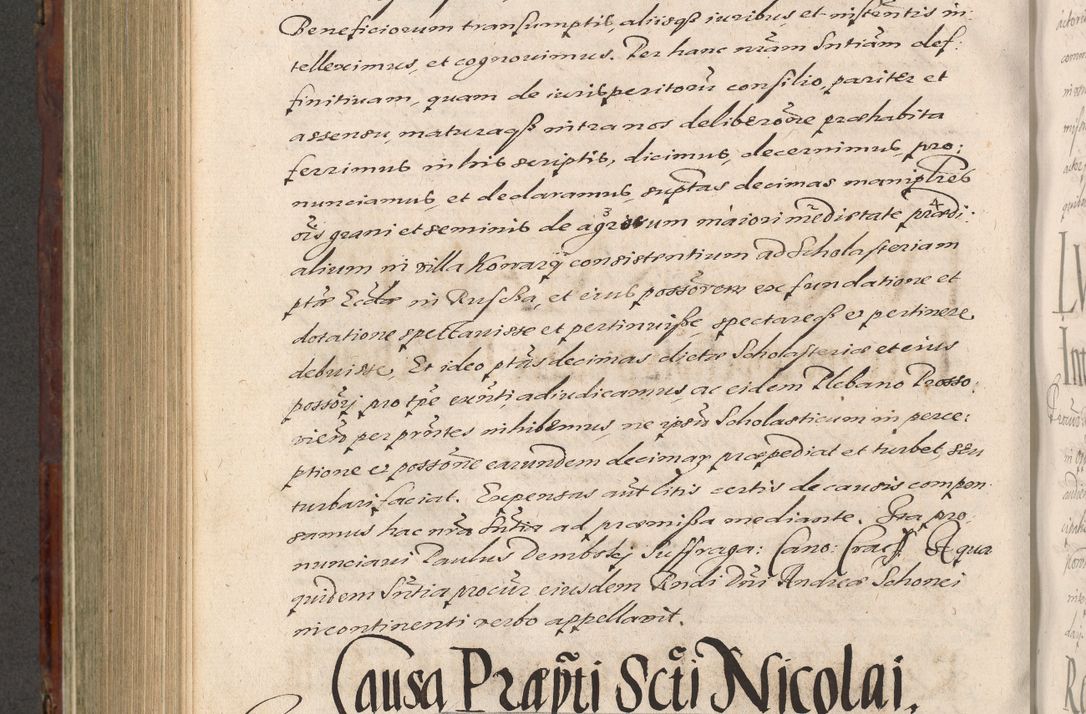 Beneficiorum transsumptis, aliisqß iuribus et instentis in
tellexcimus, et cognovimus. Per hanc nram Sntiam def:
finitivam, quam de iurisperitorũ consilio, pariter et
assensu, maturaqß intra nos deliberõne præhabita
ferrimus in his scriptis, dicimus, decernimus, pro:
nunciamus, et declaramus, suptas decimas maniptres
ois grani et seminis de agrorum maiori medietate prædi:
alium in villa Kowary consistentium ad Scholasteriam
ptæ Ecclæ in Ruscza, et eius possorem ex fundatione et
dotatione spectavisse et pertinuisse spectareqß et pertinere
debuisse, Et ideo ptas decimas dictæ Scholasteriæ et eius
possori pro tpe exnti, adiudicamus, ac eidem Plebano Prosso:
viens per pntes inhibemus, ne ipsũ Scholasticum in perce:
ptione et possone earundem decimar præpediat et turbet, seu
turbari faciat. Expensas aut litis certis de causis compen:
samus hac nra Sntia ad præmissa mediante. Ita pro:
nunciavi Paulus Dembski Suffraga: Cano: Crac A qua
quidem Sntia procur eiusdem Rndi Dni Andreæ Schonei
in continenti verbo appellavit.
Causa Præpti Scti Nicolai.